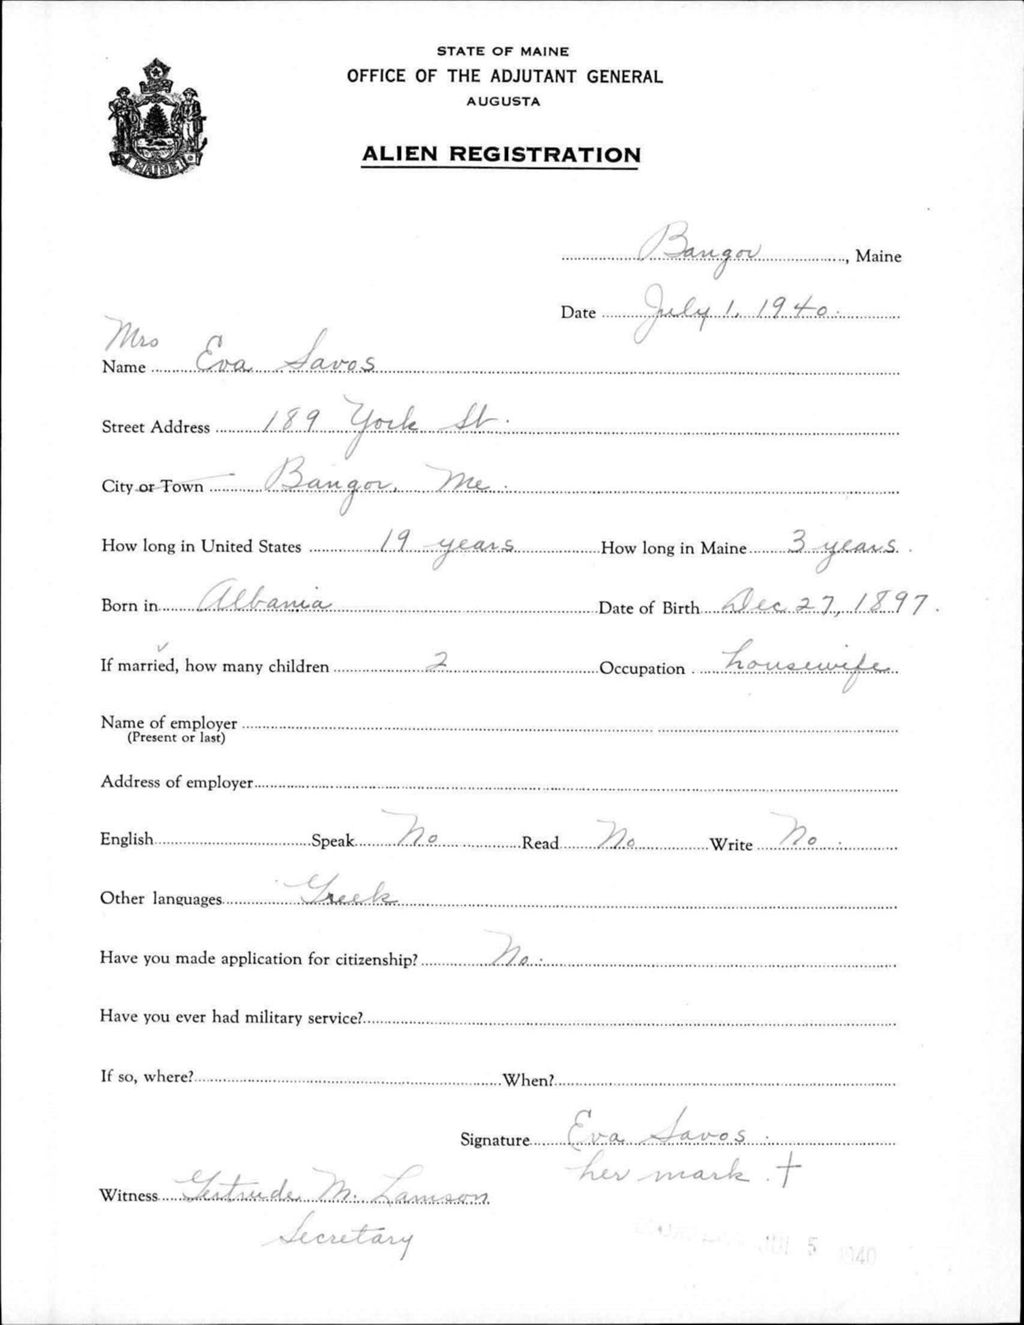 STATE OF MAINE
OFFICE OF THE ADJUTANT GENERAL
AUGUSTA
ALIEN REGISTRATION
MAINE
Bangor, Maine
Date July 1, 1940.
Mrs
Name Eva Savos
Street Address 189 York St.
City or Town Bangor, Me.
How long in United States 19 years How long in Maine 3 years.
Born in Albania Date of Birth Dec. 27, 1897.
If married, how many children 2 Occupation housewife
Name of employer
(Present or last)
Address of employer
English Speak No Read No Write No.
Other languages Greek
Have you made application for citizenship? No.
Have you ever had military service?
If so, where? When?
Signature Eva Savos.
her mark. †
Witness Gertrude M. Lamson
Secretary
5 1940